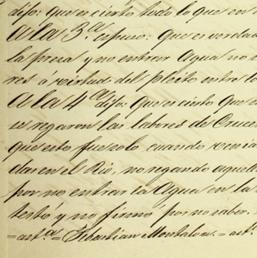 dijo: Que es cierto todo lo que en
A la 3.ª espuso: Que es verdad
la presa y no entrar Agua no
res á virtud del pleito entre lo
A la 4.ª dijo: Que es cierto que
se regaron las labores de Cruce
que esto fue solo cuando venia
dar en el Rio, no regando aquell
por no entrar la Agua en la
testó y no firmó por no saber.
=ant.ᵉ= Sebastian Montalvo.=ant.